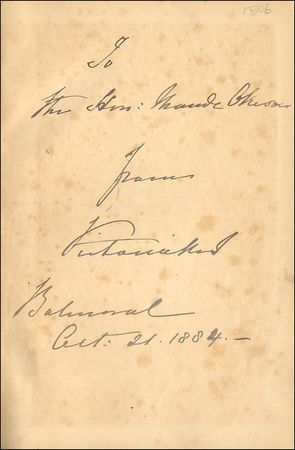 To
the Hon: Maude Okeover
from
Victoria R I
Balmoral
Oct: 21. 1884.—